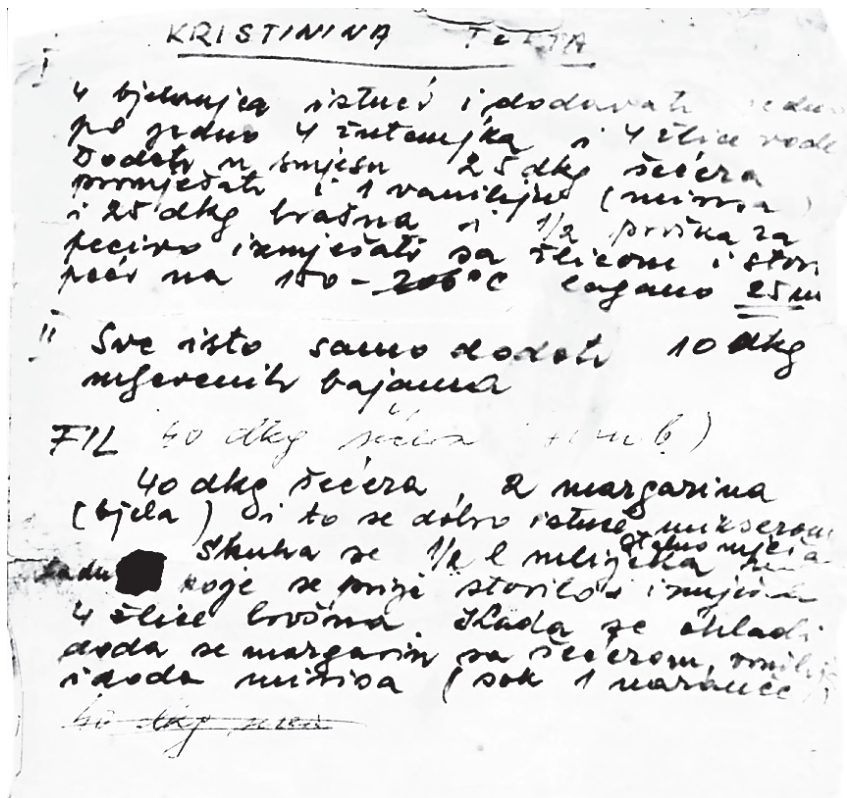 KRISTININA TETTA
I
4 bjelanjca istuć i dodavati jedno
po jedno 4 žutanjka i 4 žlice vode
Dodati u smjesu 25 dkg šećera
promješati i 1 vaniliju (mirisa)
i 25 dkg brašna i 1/2 praška za
pecivo izmješati sa žlicom i stori
peći na 150-200°C lagano 25 m
II Sve isto samo dodati 10 dkg
mljevenih bajama
FIL 40 dkg
40 dkg šećera, 2 margarina
(bjela) i to se dobro istuće mikserom
Skuha se 1/2 l mlijeka
koje se prije storilo i
4 žlice brašna Kada se ohladi
doda se margarin sa šećerom,
i doda mirisa (sok 1 naranče)
40 dkg